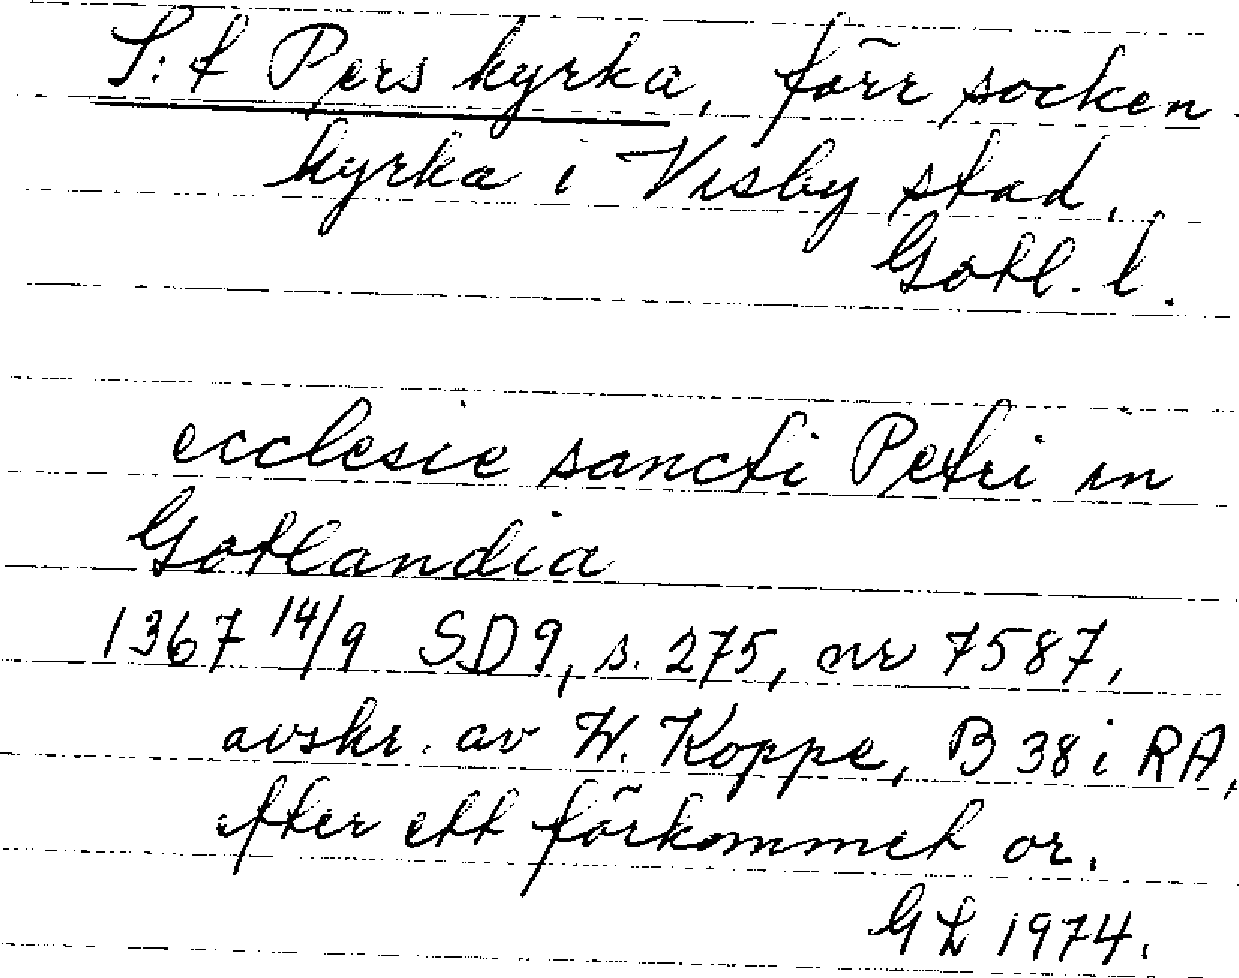 S:t Pers kyrka, förr socken
kyrka i Visby stad,
Gotl. l.
ecclesie sancti Petri in
Gotlandia
1367 14/9 SD9, s. 275, nr 7587,
avskr. av W. Koppe, B 38 i RA,
efter ett förkommet or.
GL 1974.